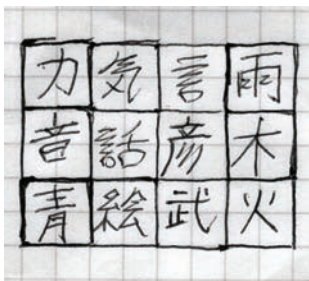 力気言雨
音話彦木
青絵武火